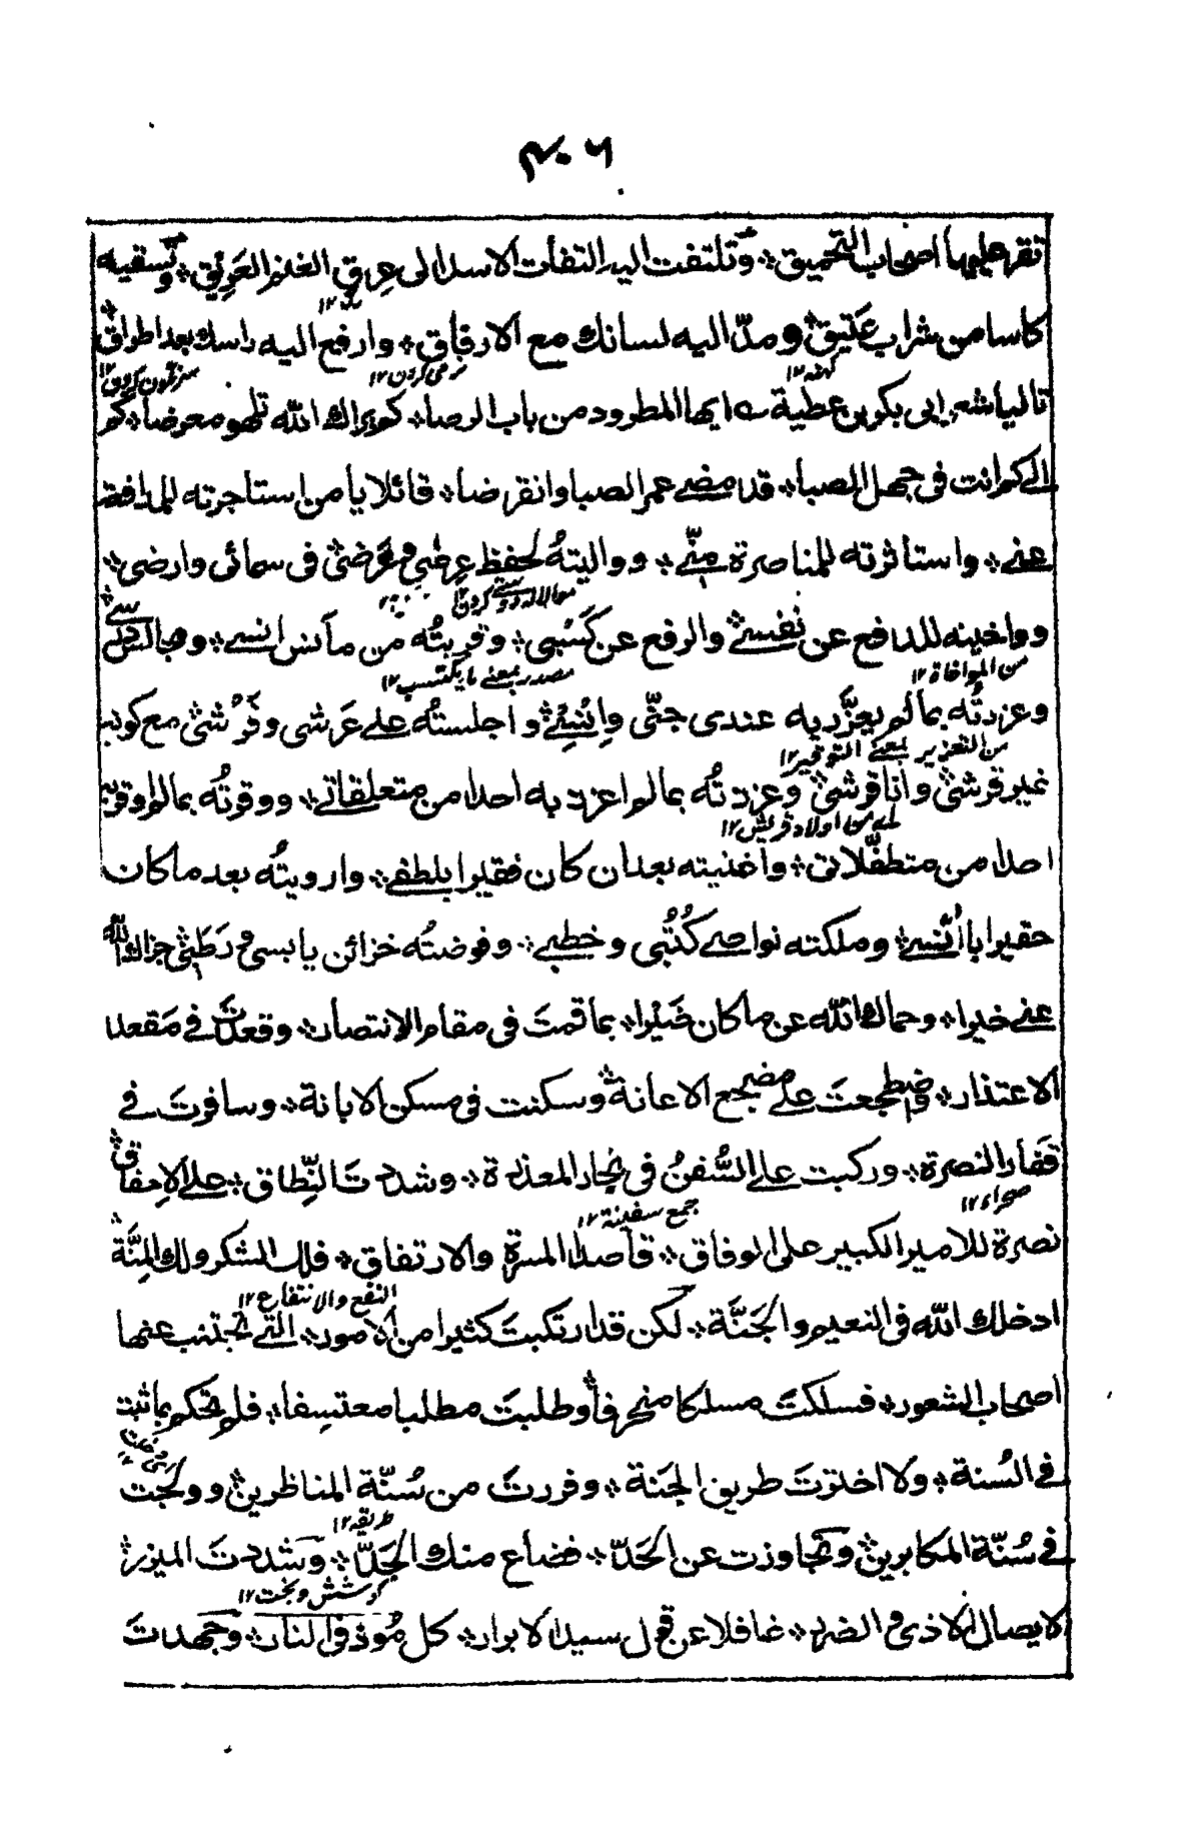 ۴۰۶
تقر عليها اصحاب التحميق ٭ وتلتفت اليه التفات الاسد الى عرق الغنم العريق ٭ وتسقيه
كاسا من شراب عتيق ٭ ومدّ اليه لسانك مع الارفاق ٭ وارفع اليه راسك بعد اطراق ٭
كهنه ۱۲ نرمی کردن ۱۲
تاليا شعر ابى بكر بن عطية ايها المطرود من باب الرضا ٭ كم يراك الله تلهو معرضا ٭ كم
الى كم انت فى جهل الصبا ٭ قد مضى عمر الصبا وانقرضا ٭ قائلا يا من استأجرته للمدافعة
عنى ٭ واستأثرته للمناصرة منّى ٭ وواليتهُ لحفظ عِرضي وعَرَضى ٭ فى سمائى وارضى ٭
موالاة دوستی کردن ۱۲
وواخيته للدافع عن نفسى ٭ والرفع عن كَسْبى ٭ وقربتُه من مآنس انسى ٭ ومجالس
من المواخاة ۱۲ مصدر بمعنى ما يكتسب ۱۲
وعزرتُه بما لم يعزَّر به عندى جنّى وانسى ٭ واجلستُه على عَرشى وفَرْشى ٭ مع كونه
من التعزير بمعنى التوقير ۱۲
غير قرشى ٭ وانا قرشى ٭ وعززتُه بما لم اعزز به احدا من متعلقاتى ٭ ووقرتُه بما لم اوقر به
اى من اولاد قريش ۱۲
احدا من متطفّلاتى ٭ واغنيته بعد ان كان فقيرا بلطفى ٭ وارويتُه بعد ما كان
حقيرا باُنسى ٭ وملكته نواصى كُتُبى وخطبى ٭ وفوضتُه خزائن يابسى ورَطَبى ٭ جزاك الله
عنى خيرا ٭ وحماك الله عن ما كان ضَيْرا ٭ بما قمتَ فى مقام الانتصار ٭ وقعدتَ فى مَقعد
الاعتذار ٭ واضطجعتَ على مضجع الاعانة ٭ وسكنت فى مسكن الابانة ٭ وسافرتَ فى
قفار النصرة ٭ وركبت على السُّفنُ فى بحار المعذرة ٭ وشددتَ النِّطاق ٭ على الاِخفاق ٭
صحراء ۱۲ جمع سفينة ۱۲
نصرة للامير الكبير على الوفاق ٭ قاصدا المسرة والارتفاق ٭ فلك الشكر ولك المِنَّة ٭
النفع والانتفاع ۱۲
ادخلك الله فى النعيم والجَنَّة ٭ لكن قد ارتكبتَ كثيرا من الامور ٭ التى تجتنب عنها
اصحاب الشعور ٭ فسلكتَ مسلكا منحرفا ٭ وطلبتَ مطلبا معتسِفا ٭ فلم تحكم بما ثبت
فى السُنة ٭ ولا اخترتَ طريق الجَنة ٭ وفررتَ من سُنّة المناظرين ٭ وولجت
طريقه ۱۲
فى سُنّة المكابرين ٭ وتجاوزت عن الحَدّ ٭ فضاع منك الجَدّ ٭ وشددتَ الميزر ٭
كوشش وبخت ۱۲
لايصال الاذى والضرر ٭ غافلا عن قول سيد الابرار ٭ كل مُوذ فى النار ٭ وجَهدتَ